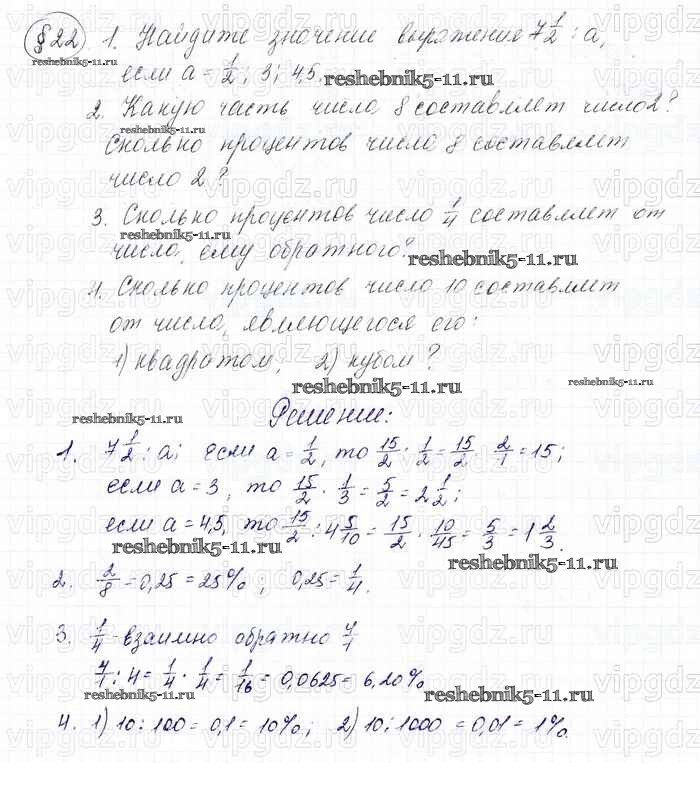 §22 1. Найдите значение выражения 7 1/2 : a,
reshebnik5-11.ru
если a = 1/2; 3; 4,5. reshebnik5-11.ru
2. Какую часть числа 8 составляет число 2?
reshebnik5-11.ru
Сколько процентов числа 8 составляет
число 2?
3. Сколько процентов число 1/4 составляет от
reshebnik5-11.ru
числа, ему обратного?
reshebnik5-11.ru
4. Сколько процентов число 10 составляет
от числа, являющегося его:
1) квадратом, 2) кубом?
reshebnik5-11.ru reshebnik5-11.ru
reshebnik5-11.ru Решение:
1. 7 1/2 : a; если a = 1/2, то 15/2 : 1/2 = 15/2 · 2/1 = 15;
если a = 3, то 15/2 · 1/3 = 5/2 = 2 1/2;
если a = 4,5, то 15/2 : 4 5/10 = 15/2 · 10/45 = 5/3 = 1 2/3.
reshebnik5-11.ru reshebnik5-11.ru
2. 2/8 = 0,25 = 25%; 0,25 = 1/4.
3. 1/4 - взаимно обратно 4/1
1/4 : 4 = 1/4 · 1/4 = 1/16 = 0,0625 = 6,20%
reshebnik5-11.ru reshebnik5-11.ru
4. 1) 10 : 100 = 0,1 = 10%; 2) 10 : 1000 = 0,01 = 1%.
vipgdz.ru